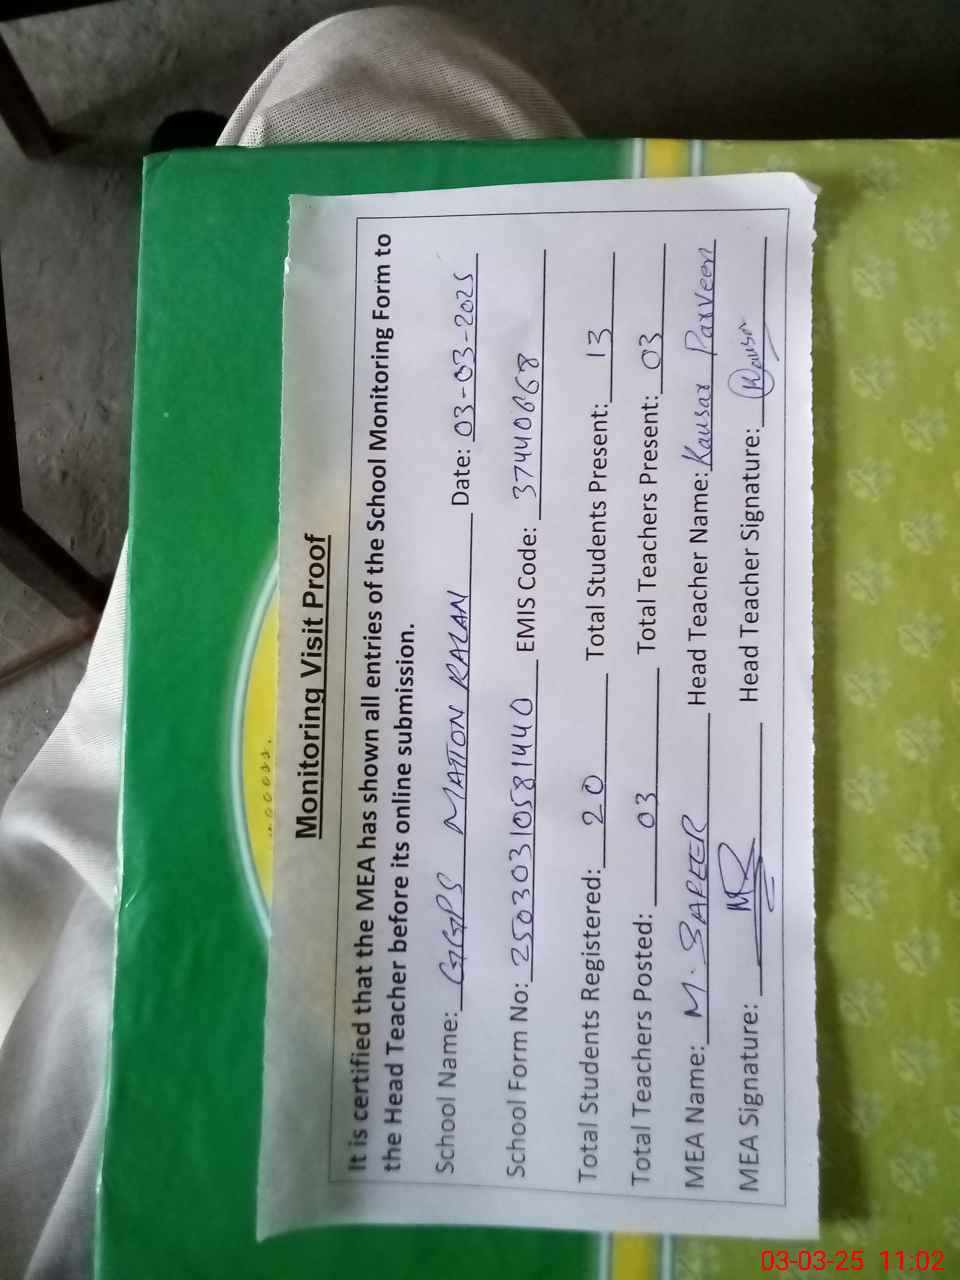 Monitoring Visit Proof
It is certified that the MEA has shown all entries of the School Monitoring Form to
the Head Teacher before its online submission.
School Name: GGPS MATTON KALAN Date: 03-03-2025
School Form No: 25030310581440 EMIS Code: 37440668
Total Students Registered: 20 Total Students Present: 13
Total Teachers Posted: 03 Total Teachers Present: 03
MEA Name: M. SAFEER Head Teacher Name: Kausar Parveen
MEA Signature: Head Teacher Signature: Kausar
03-03-25 11:02